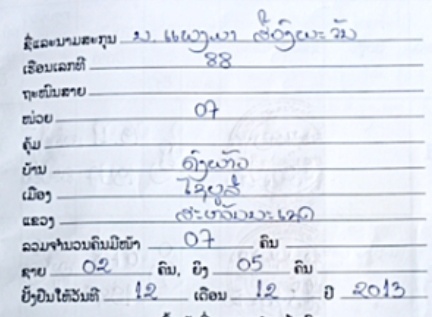 ຊື່ແລະນາມສະກຸນ ນ. ແພງພາ
ເຮືອນເລກທີ 88
ຖະໜົນສາຍ
ໜ່ວຍ 07
ຄຸ້ມ
ບ້ານ
ເມືອງ ໄຊພູລີ
ແຂວງ ສະຫວັນນະເຂດ
ລວມຈຳນວນຄົນມີໜ້າ 07 ຄົນ
ຊາຍ 02 ຄົນ, ຍິງ 05 ຄົນ
ຢັ້ງຢືນໃຫ້ວັນທີ 12 ເດືອນ 12 ປີ 2013